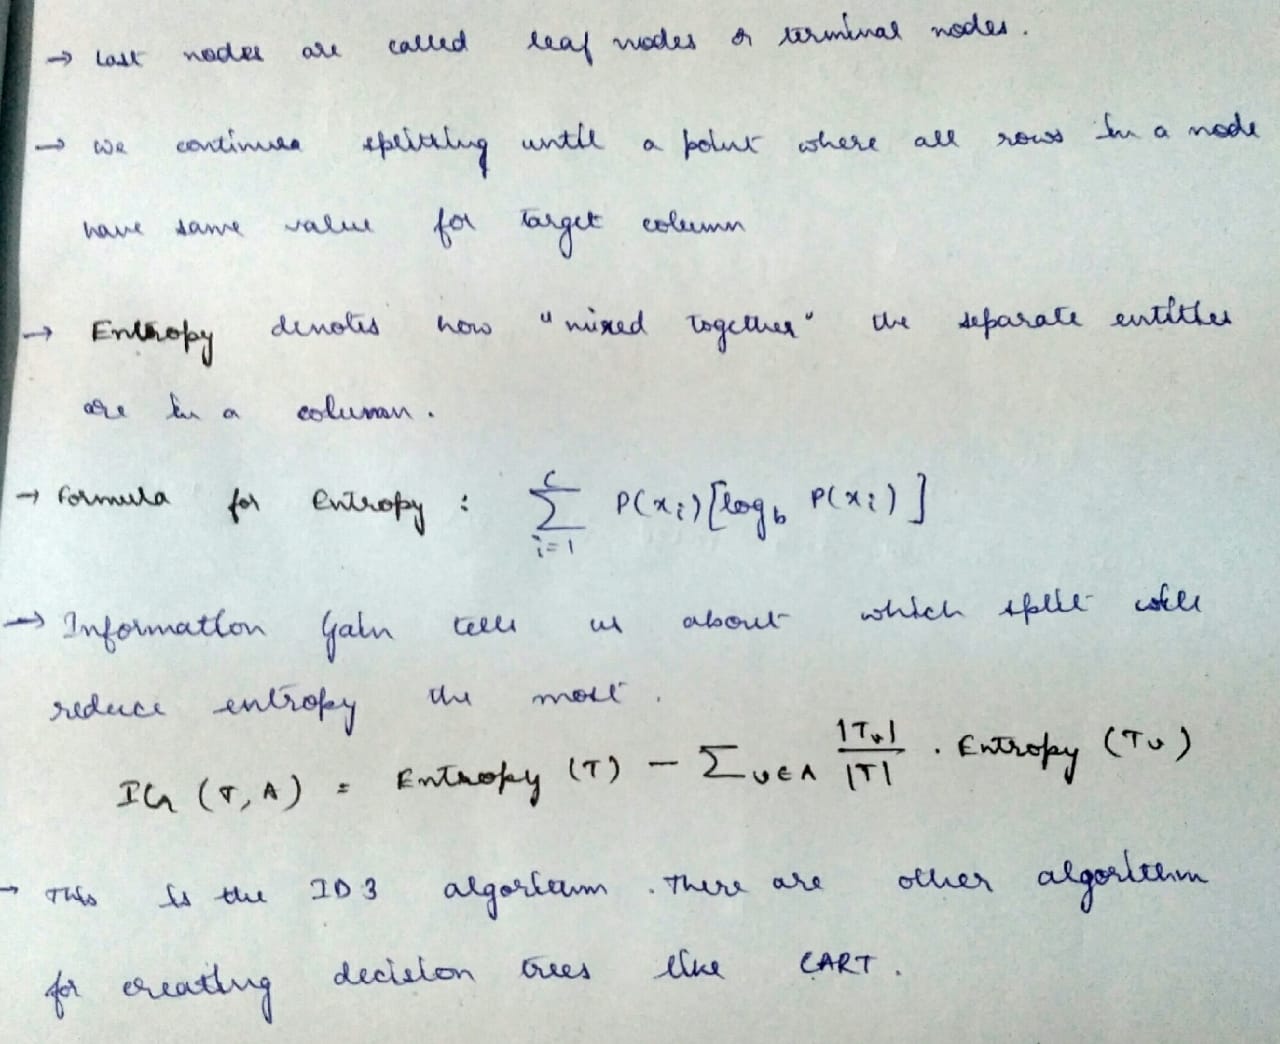 → Last nodes are called leaf nodes or terminal nodes.
→ We continues splitting until a point where all rows in a node
have same value for target column
→ Entropy denotes how "mixed together" the separate entities
are in a column.
→ Formula for Entropy : ∑_{i=1}^{c} P(x_i) [log_b P(x_i)]
→ Information Gain tells us about which split will
reduce entropy the most.
IG (T, A) = Entropy (T) − ∑_{v∈A} |T_v|/|T| . Entropy (T_v)
→ This is the ID3 algorithm. There are other algorithm
for creating decision trees like CART.